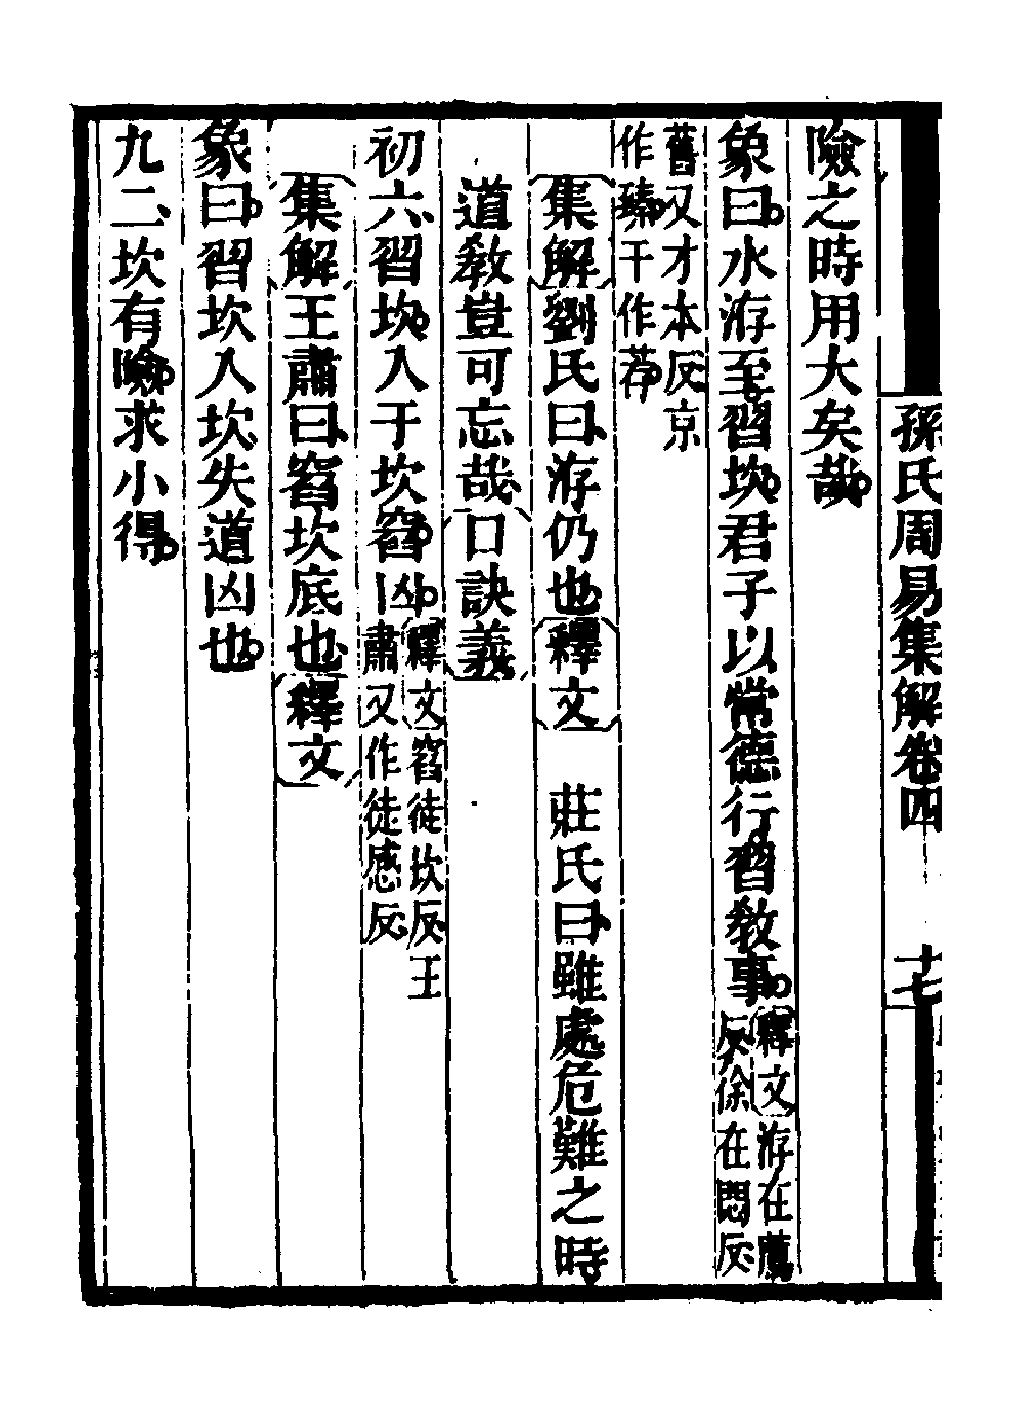 孫氏周易集解卷四　十七
險之時用大矣哉
象曰水洊至習坎君子以常德行習教事釋文洊在薦
反徐在悶反
舊又才本反京
作臻干作荐
集解劉氏曰洊仍也釋文　莊氏曰雖處危難之時
道教豈可忘哉口訣義
初六習坎入于坎窞凶釋文窞徒坎反王
肅又作徒感反
集解王肅曰窞坎底也釋文
象曰習坎入坎失道凶也
九二坎有險求小得